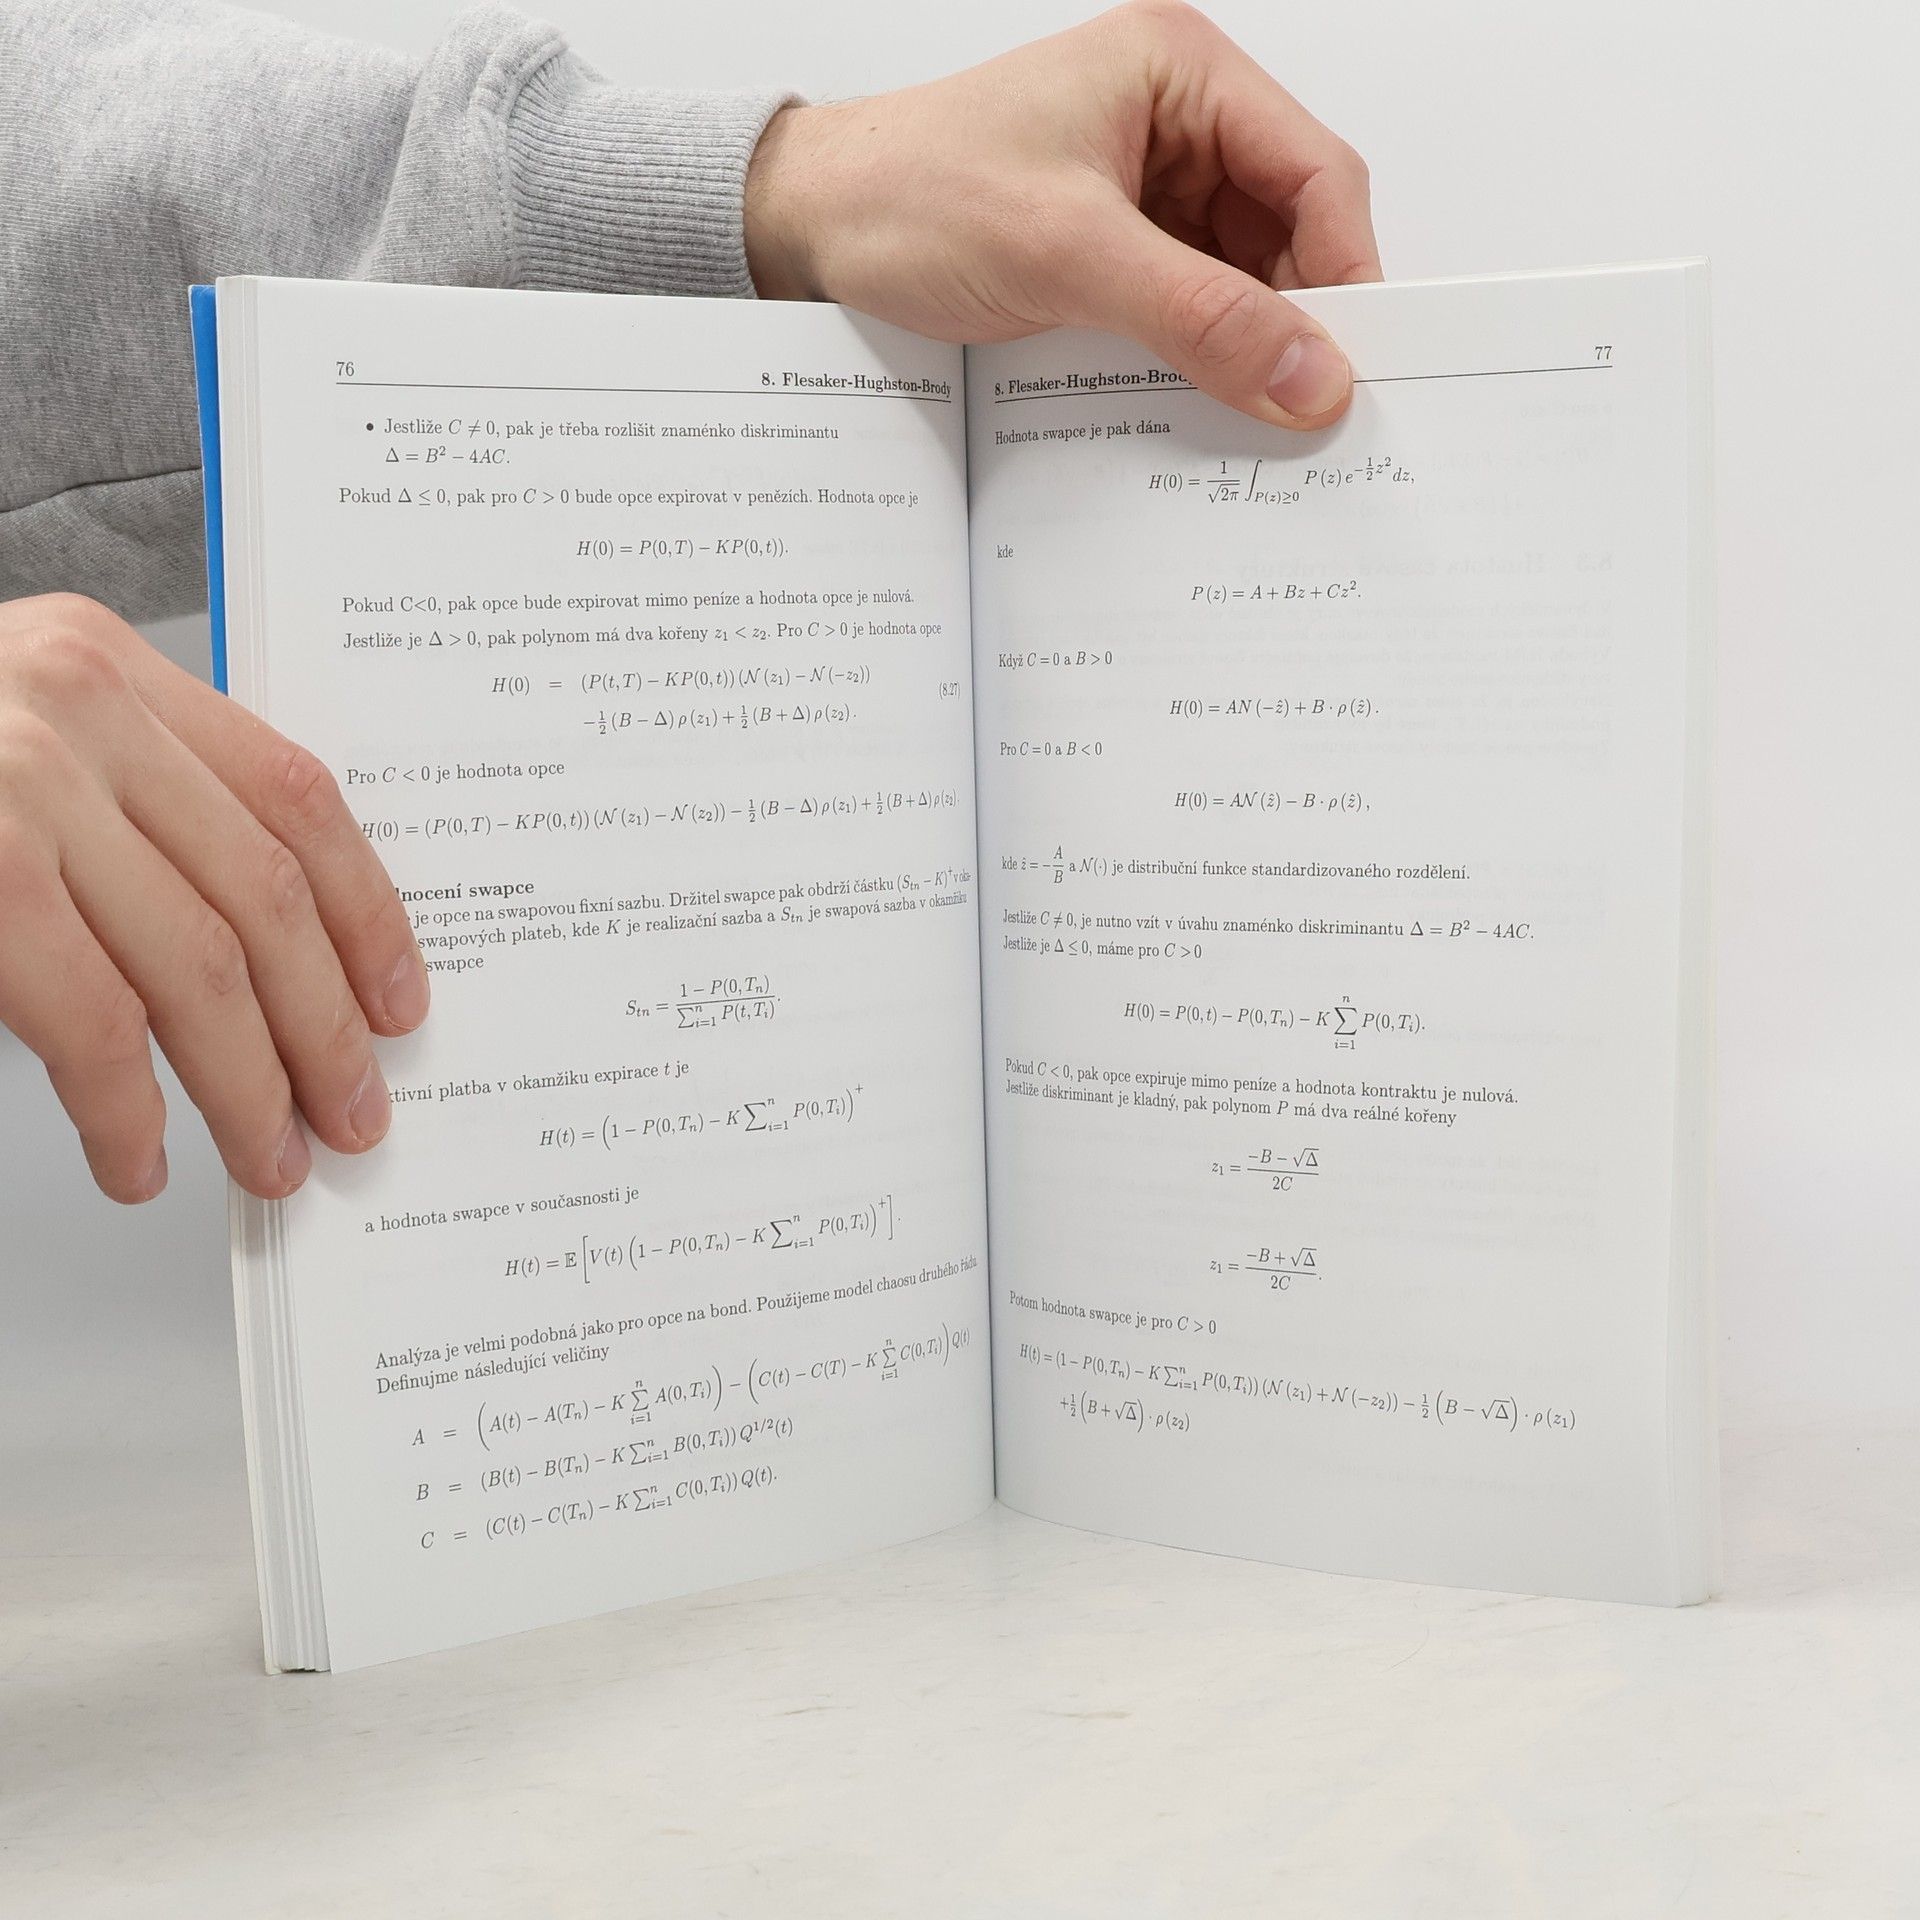 76
8. Flesaker-Hughston-Brody
• Jestliže C ≠ 0, pak je třeba rozlišit znaménko diskriminantu
Δ = B² − 4AC.
Pokud Δ ≤ 0, pak pro C > 0 bude opce expirovat v penězích. Hodnota opce je
H(0) = P(0,T) − KP(0,t)).
Pokud C<0, pak opce bude expirovat mimo peníze a hodnota opce je nulová.
Jestliže je Δ > 0, pak polynom má dva kořeny z₁ < z₂. Pro C > 0 je hodnota opce
H(0) = (P(t,T) − KP(0,t)) (𝒩(z₁) − 𝒩(−z₂))
(8.27)
−½ (B − Δ) ρ(z₁) + ½ (B + Δ) ρ(z₂).
Pro C < 0 je hodnota opce
H(0) = (P(0,T) − KP(0,t)) (𝒩(z₁) − 𝒩(z₂)) − ½ (B − Δ) ρ(z₁) + ½ (B + Δ) ρ(z₂).
nocení swapce
je opce na swapovou fixní sazbu. Držitel swapce pak obdrží částku (Sₜₙ − K)⁺ v oka-
swapových plateb, kde K je realizační sazba a Sₜₙ je swapová sazba v okamžiku
swapce
Sₜₙ = (1 − P(0,Tₙ)) / (∑ᵢ₌₁ⁿ P(t,Tᵢ)).
tivní platba v okamžiku expirace t je
H(t) = (1 − P(0,Tₙ) − K ∑ᵢ₌₁ⁿ P(0,Tᵢ))⁺
a hodnota swapce v současnosti je
H(t) = 𝔼 [V(t) (1 − P(0,Tₙ) − K ∑ᵢ₌₁ⁿ P(0,Tᵢ))⁺].
Analýza je velmi podobná jako pro opce na bond. Použijeme model chaosu druhého řádu
Definujme následující veličiny
A = (A(t) − A(Tₙ) − K ∑ᵢ₌₁ⁿ A(0,Tᵢ)) − (C(t) − C(T) − K ∑ᵢ₌₁ⁿ C(0,Tᵢ)) Q(t)
B = (B(t) − B(Tₙ) − K ∑ᵢ₌₁ⁿ B(0,Tᵢ)) Q^{1/2}(t)
C = (C(t) − C(Tₙ) − K ∑ᵢ₌₁ⁿ C(0,Tᵢ)) Q(t).
77
8. Flesaker-Hughston-Brod
Hodnota swapce je pak dána
H(0) = 1/√2π ∫_{P(z)≥0} P(z) e^{−½z²} dz,
kde
P(z) = A + Bz + Cz².
Když C = 0 a B > 0
H(0) = AN(−ẑ) + B · ρ(ẑ).
Pro C = 0 a B < 0
H(0) = A𝒩(ẑ) − B · ρ(ẑ),
kde ẑ = −A/B a 𝒩(·) je distribuční funkce standardizovaného rozdělení.
Jestliže C ≠ 0, je nutno vzít v úvahu znaménko diskriminantu Δ = B² − 4AC.
Jestliže je Δ ≤ 0, máme pro C > 0
H(0) = P(0,t) − P(0,Tₙ) − K ∑ᵢ₌₁ⁿ P(0,Tᵢ).
Pokud C < 0, pak opce expiruje mimo peníze a hodnota kontraktu je nulová.
Jestliže diskriminant je kladný, pak polynom P má dva reálné kořeny
z₁ = (−B − √Δ) / 2C
z₁ = (−B + √Δ) / 2C.
Potom hodnota swapce je pro C > 0
H(t) = (1 − P(0,Tₙ) − K ∑ᵢ₌₁ⁿ P(0,Tᵢ)) (𝒩(z₁) + 𝒩(−z₂)) − ½ (B − √Δ) · ρ(z₁)
+½ (B + √Δ) · ρ(z₂)